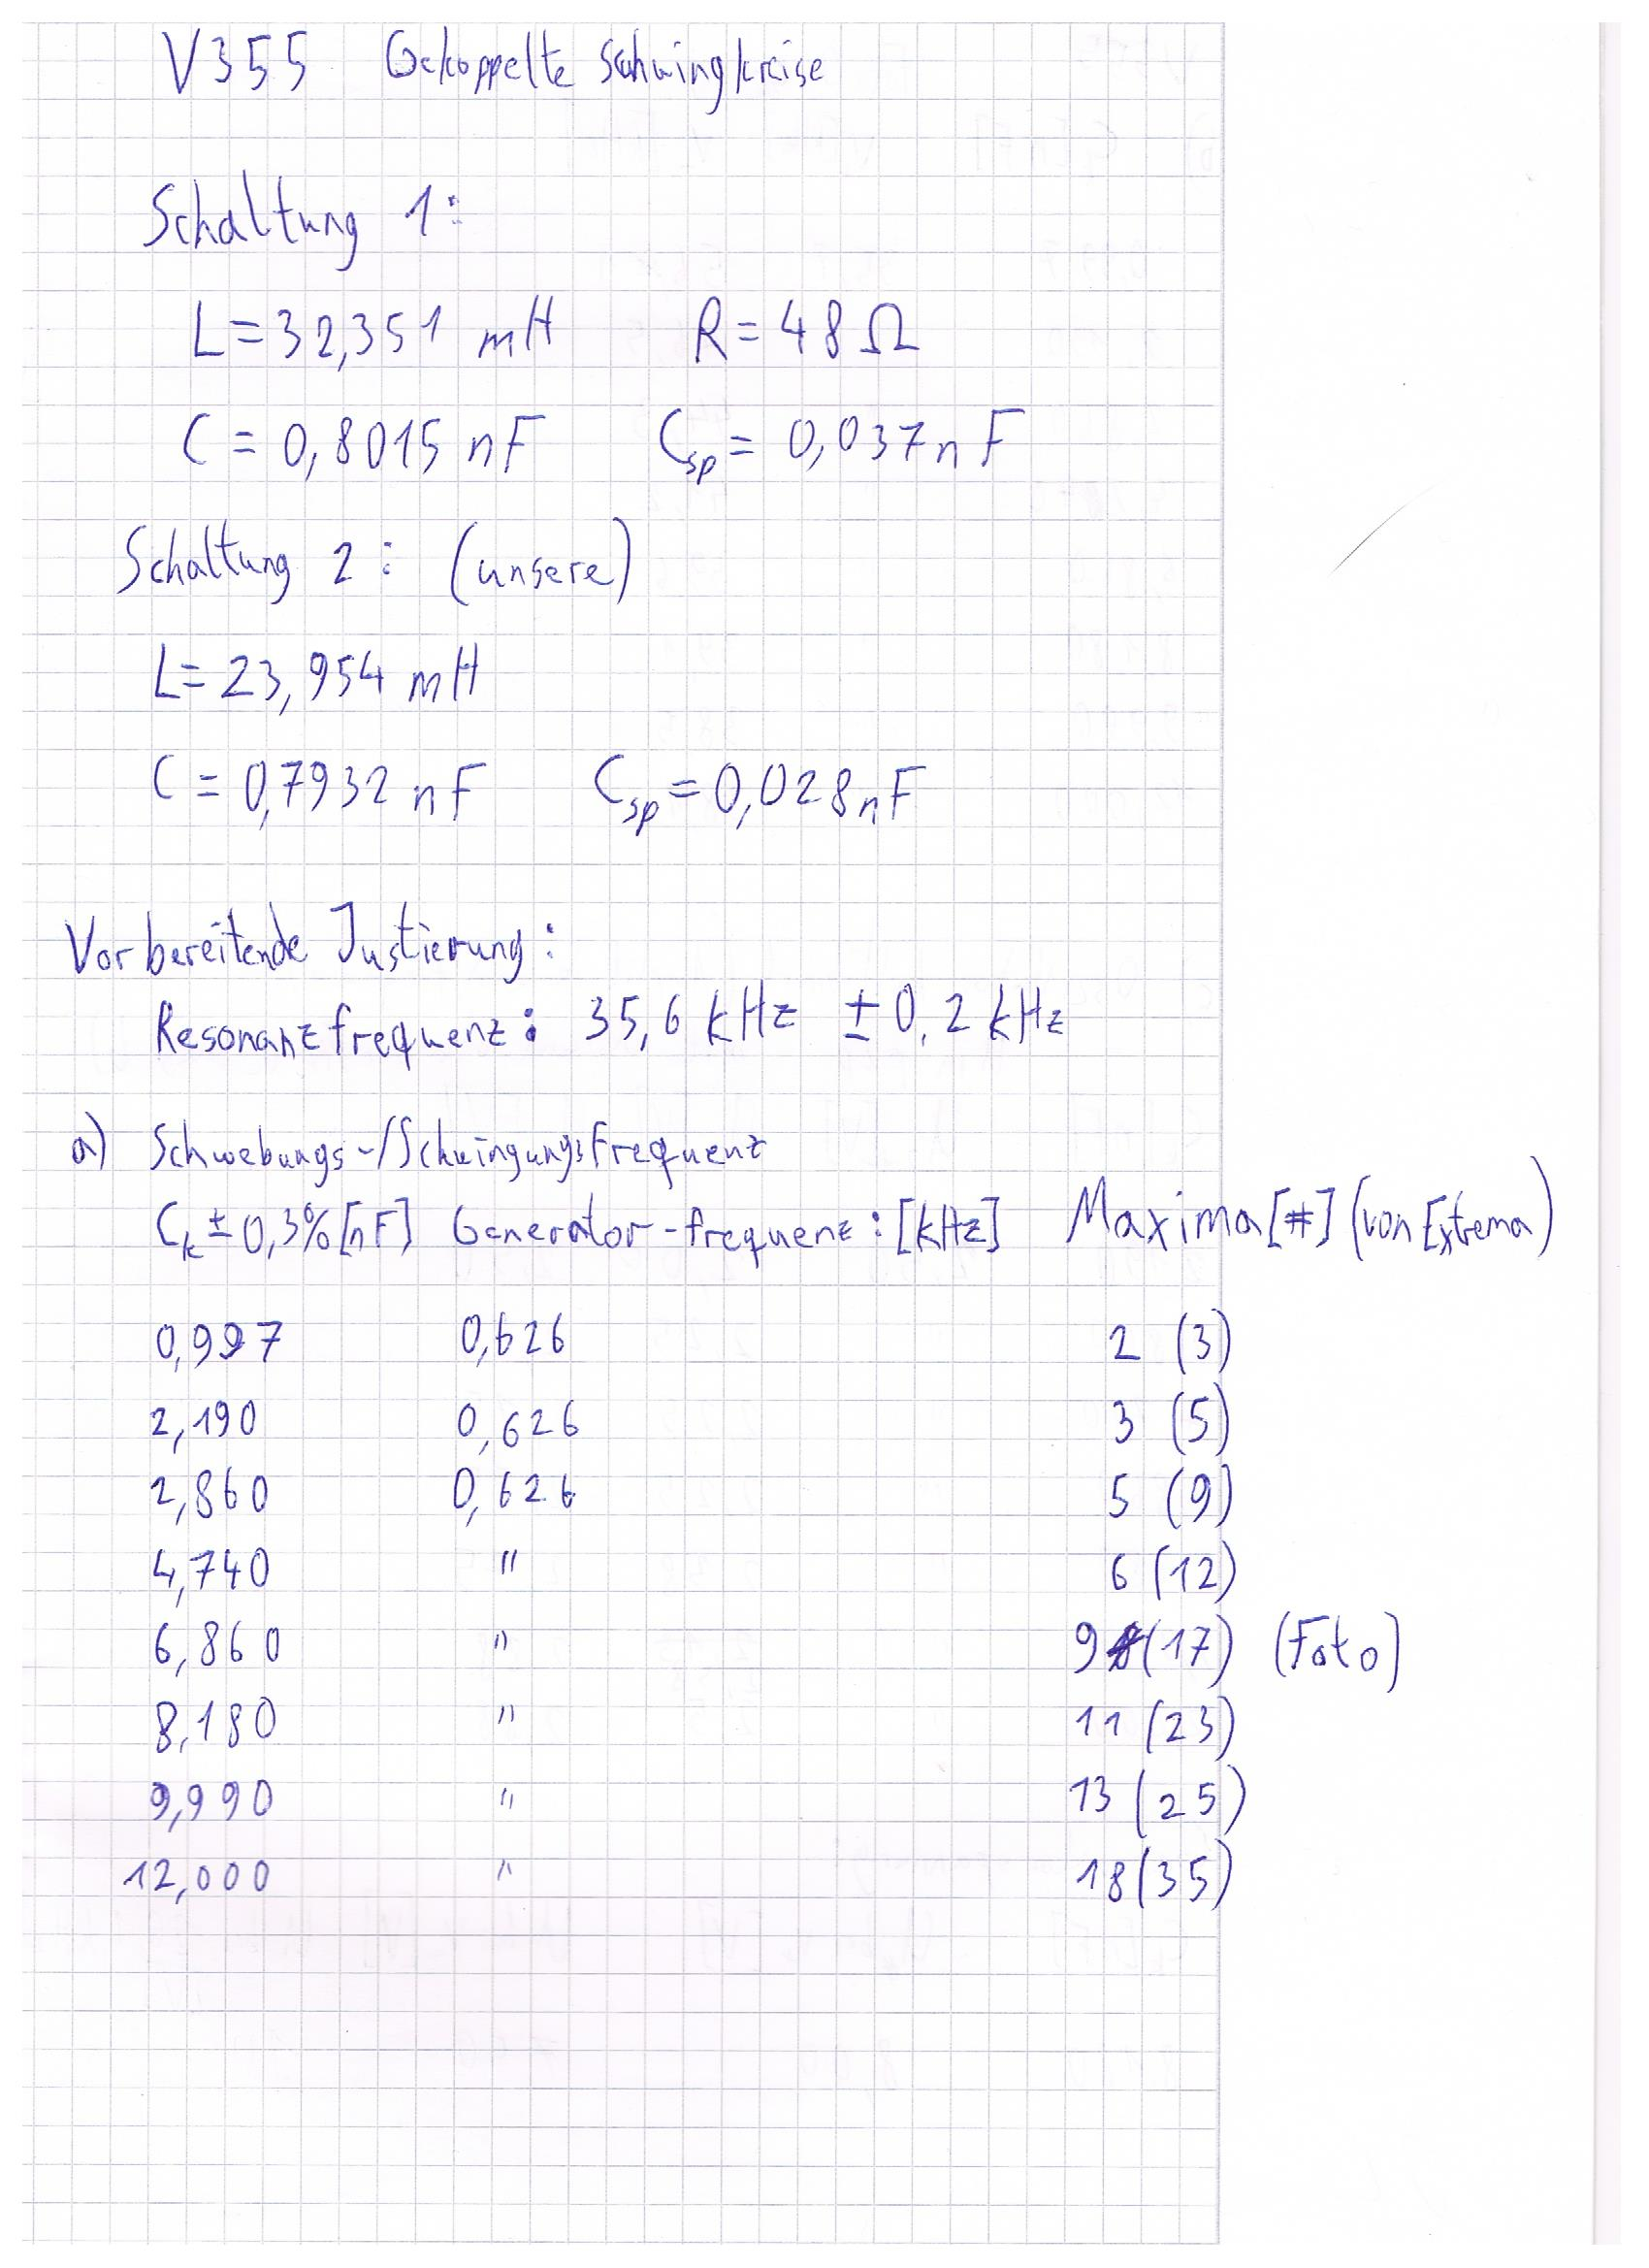 V355 Gekoppelte Schwingkreise
Schaltung 1:
L=32,351 mH R=48Ω
C=0,8015 nF Csp=0,037nF
Schaltung 2: (unsere)
L=23,954 mH
C=0,7932 nF Csp=0,028nF
Vorbereitende Justierung:
Resonanzfrequenz: 35,6 kHz ±0,2 kHz
a) Schwebungs-/Schwingungsfrequenz
Ck±0,3%[nF] Generator-frequenz:[kHz] Maxima[#](von Extrema)
0,997 0,626 2 (3)
2,190 0,626 3 (5)
2,860 0,626 5 (9)
4,740 " 6 (12)
6,860 " 9 (17) (Foto)
8,180 " 11 (23)
9,990 " 13 (25)
12,000 " 18(35)